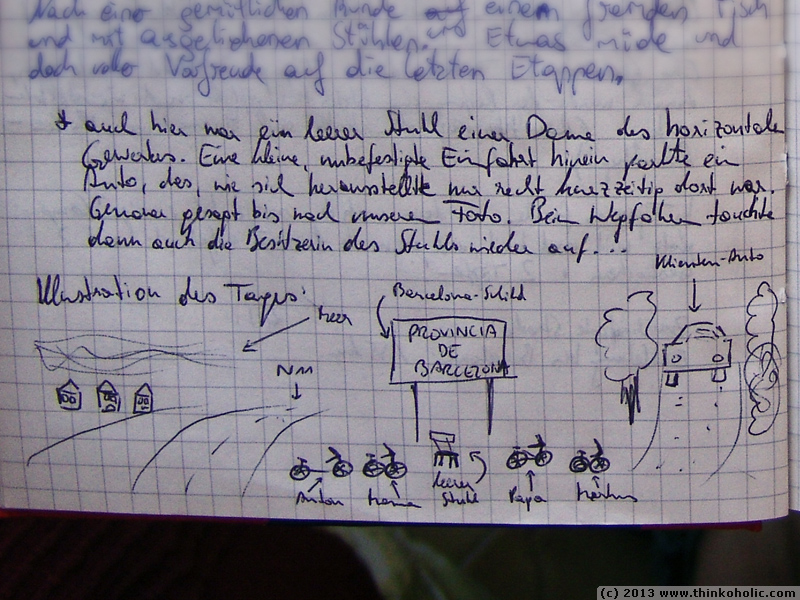 Nach einer gemütlichen Runde auf einem fremden Tisch
und mit ausgeliehenen Stühlen. Etwas müde und
doch voller Vorfreude auf die letzten Etappen.
* auch hier war ein leerer Stuhl einer Dame des horizontalen
Gewerbes. Eine kleine, unbefestigte Einfahrt hinein parkte ein
Auto, das, wie sich herausstellte nur recht kurzzeitig dort war.
Genauer gesagt bis nach unserem Foto. Beim Wegfahren tauchte
dann auch die Besitzerin des Stuhls wieder auf...
Klienten-Auto
Illustration des Tages:
Barcelona-Schild
Meer
PROVINCIA
DE
BARCELONA
NM
leerer
Stuhl
Papa
Markus
(c) 2013 www.thinkoholic.com